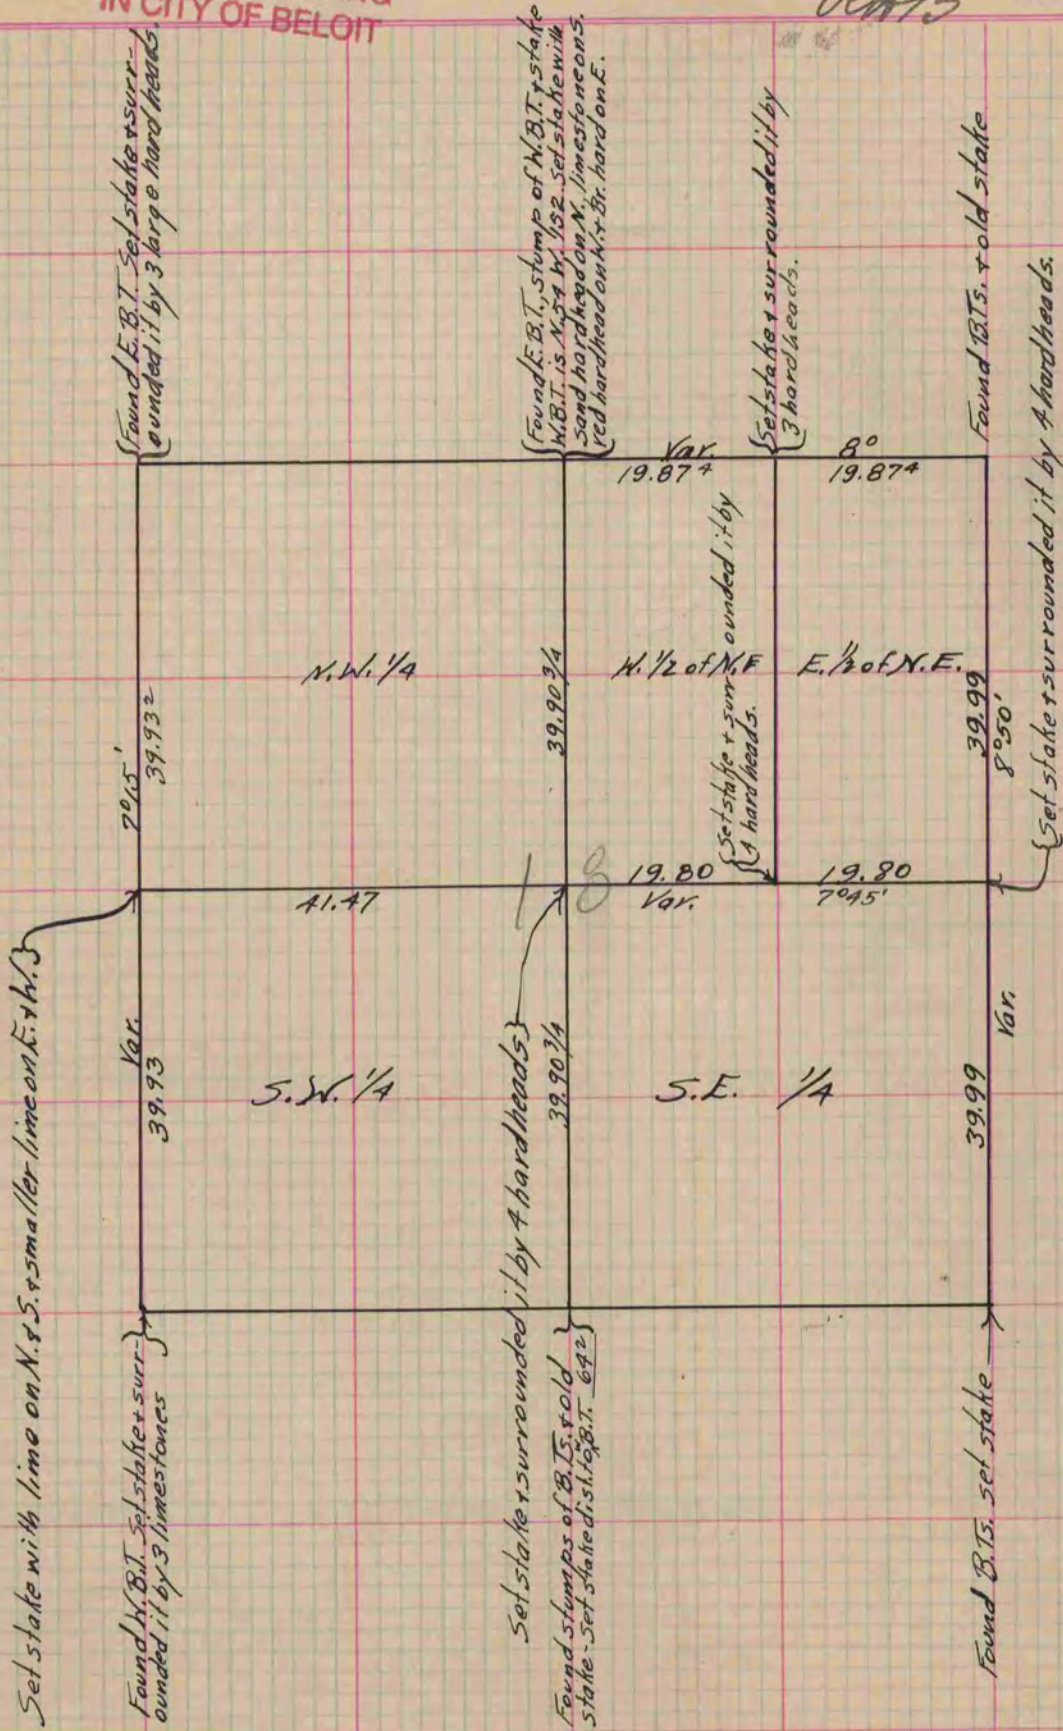 IN CITY OF BELOIT
{Found E.B.T. Set stake & surr-
ounded it by 3 large hard heads.
{Found E.B.T., stump of W.B.T. & stake
W.B.T. is N.54 W. 152 Set stake with
sand hardhead on N., limestone on S.
red hardhead on W. & Br. hard on E.
{Set stake & surrounded it by
3 hardheads.
Found B.Ts. & old stake
Var.
8°
19.87⁴
19.87⁴
{Set stake & surrounded it by
4 hardheads.
N.W. 1/4
W. 1/2 of N.E
E. 1/2 of N.E.
7°15'
39.93²
39.90 3/4
39.99
8°50'
{Set stake & surrounded it by 4 hardheads.
18
41.47
19.80
Var.
19.80
7°45'
Set stake with lime on N. & S. & smaller lime on E. & W.}
Var.
39.93
39.90 3/4
39.99
Var.
S.W. 1/4
S.E. 1/4
Set stake & surrounded it by 4 hardheads}
Found W.B.T. Set stake & surr-}
ounded it by 3 limestones
Found stumps of B.Ts. & old
stake - Set stake dist. to W B.T. 64²}
Found B.Ts. set stake